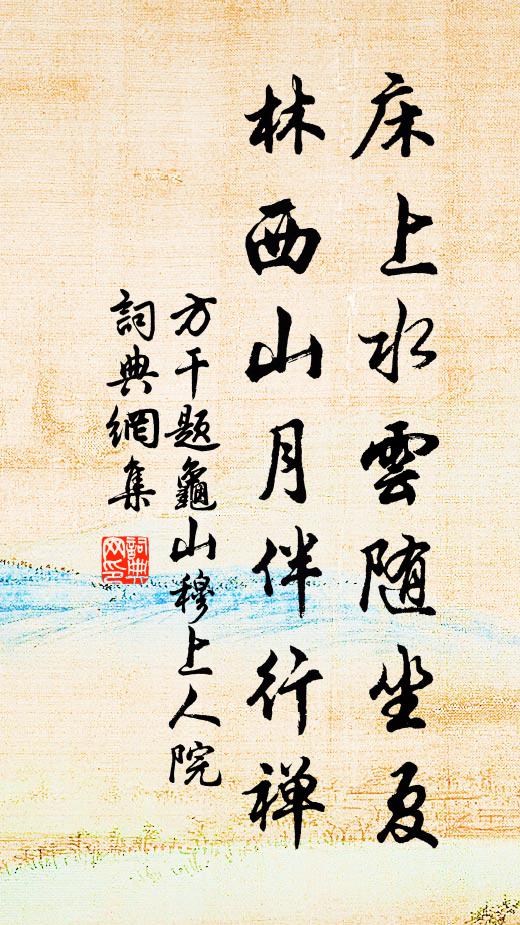 床上水雲随坐夏
林西山月伴行禅
方干题龜山穆上人院
詞典網集
詞典网印